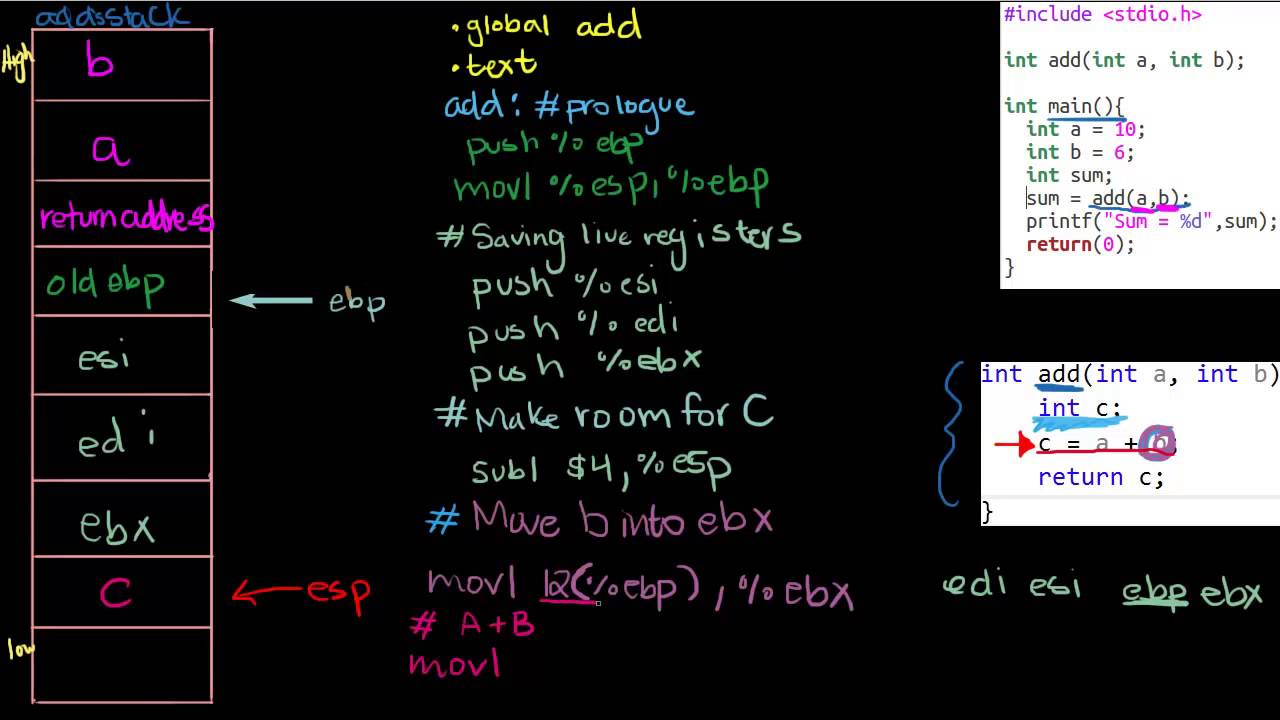 adds stack
High
b
a
return address
old ebp
ebp
esi
edi
ebx
c
esp
low
.global add
.text
add: #prologue
push %ebp
movl %esp, %ebp
# Saving live registers
push %esi
push %edi
push %ebx
# Make room for C
subl $4, %esp
# Move b into ebx
movl 12(%ebp), %ebx
# A+B
movl
#include <stdio.h>
int add(int a, int b);
int main(){
int a = 10;
int b = 6;
int sum;
sum = add(a,b);
printf("Sum = %d",sum);
return(0);
}
int add(int a, int b)
int c;
c = a + b;
return c;
}
edi esi ebp ebx